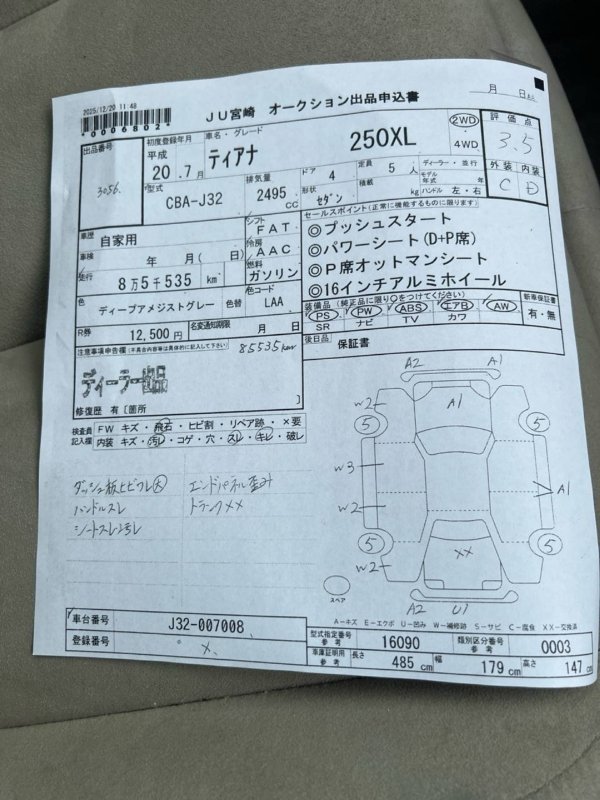 2025/12/20 11:48
*0006802*
JU宮崎 オークション出品申込書
月 日
出品番号
3056
初度登録年月
平成
20 . 7 月
車名・グレード
ティアナ
250XL
2WD
・
4WD
評価点
3.5
型式
CBA-J32
排気量
2495 CC
ドア
4
形状
セダン
定員
5 人
積載
kg
ディーラー・並行
モデル年式 年
ハンドル 左・右
外装 内装
C D
車歴
自家用
シフト
FAT
車検
年 月( 日)
冷房
AAC
走行
8万5千535 km
燃料
ガソリン
色
ディープアメジストグレー
色替
カラーコード
LAA
R券
12,500 円
名変通知期限
月 日
セールスポイント(正常に機能するものに限ります)
◎プッシュスタート
◎パワーシート(D+P席)
◎P席オットマンシート
◎16インチアルミホイール
装備品(純正品に限り○をつけてください)
PS PW ABS エアB AW
SR ナビ TV カワ
新車保証書
有・無
後日品 保証書
注意事項申告欄(不具合内容等は具体的に記入して下さい)
85535km
ディーラー出品
修復歴 有〔箇所 〕
検査員記入欄
FW キズ・飛石・ヒビ割・リペア跡・×要
内装 キズ・汚れ・コゲ・穴・スレ・キレ・破レ
ダッシュ板ヒビワレ大
ハンドルスレ
シートスレ汚レ
エンドパネル歪み
トランクXX
A2 A1
W2 A1
5 5
W3
W2
A1
5 5
W2 XX
スペア
A2 U1
A-キズ E-エクボ U-凹み W-補修跡 S-サビ C-腐食 XX-交換済
車台番号
J32-007008
登録番号
型式指定番号
16090
類別区分番号
0003
車庫証明用参考
長さ 485 cm
幅 179 cm
高さ 147 cm